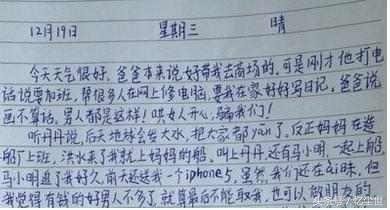 12月19日 星期三 晴
今天天气很好，爸爸本来说好带我去商场的，可是刚才他打电
话说要加班，帮很多人在网上修电脑，要我在家好好写日记，爸爸说
画不算话，男人都是这样！哄女人开心，骗我们！
听丹丹说，后天地球会出大水，把大家都yan了，反正妈妈在造
船厂上班，洪水来了我就上妈妈的船，叫上丹丹，还有马小明，一起上船，
马小明追了我好久，前天还送我一个iphone5，虽然，我们还在
但
我觉得有钱的好男人不多了，就算最后不能取我，也可以做朋友的
头条号／